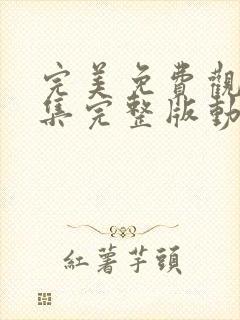 完美免費觀
集完整版動
紅薯芋頭